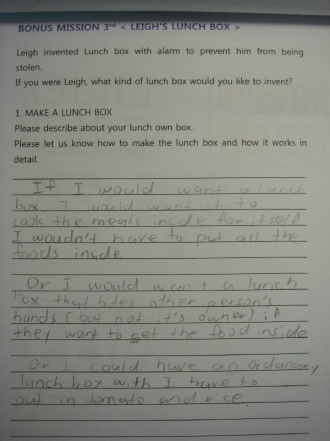 BONUS MISSION 3rd < LEIGH'S LUNCH BOX >
Leigh invented Lunch box with alarm to prevent him from being
stolen.
If you were Leigh, what kind of lunch box would you like to invent?
1. MAKE A LUNCH BOX
Please describe about your lunch own box.
Please let us know how to make the lunch box and how it works in
detail.
If I would want a lunch
box I would want it to
cook the meals inside for itself
I woudn't have to put all the
foods inside
Or I would want a lunch
box that bites other person's
hands (but not it's owner) if
they want to get the food inside.
Or I could have an ordanary
lunch box with I have to
put in tomato and rice.